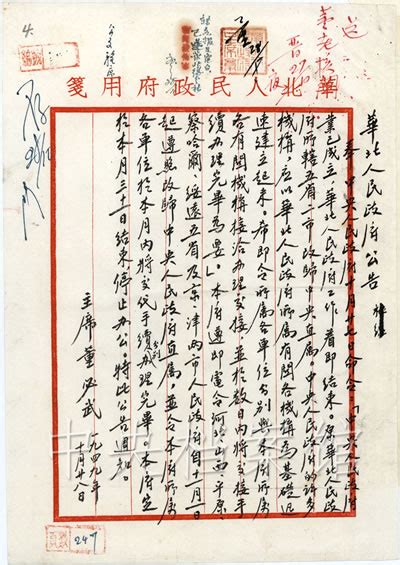 華北人民政府用箋
華北人民政府公告
奉中央人民政府十月廿七日命令：「中央人民政府
業已成立，華北人民政府工作着即結束。原華北人民政
府所轄五省二市改歸中央直屬。中央人民政府的許多
機構，应以華北人民政府所屬有關各機構為基礎迅
速建立起來。希即令所屬各單位分別與本府所屬
各有關機構接洽办理交接，並於數日內將交接手
續办理完畢為要」。本府遵即電令河北、山西、平原、
察哈爾、綏遠五省及京、津两市人民政府自十一月一日
起遵照改歸中央人民政府直屬，並令本府所屬
各單位於本月內將交代手續分別办理完畢。本府定
於本月三十一日結束停止办公。特此公告週知。
主席 董必武
一九四九年
十月廿八日
中央檔案館
4.
247